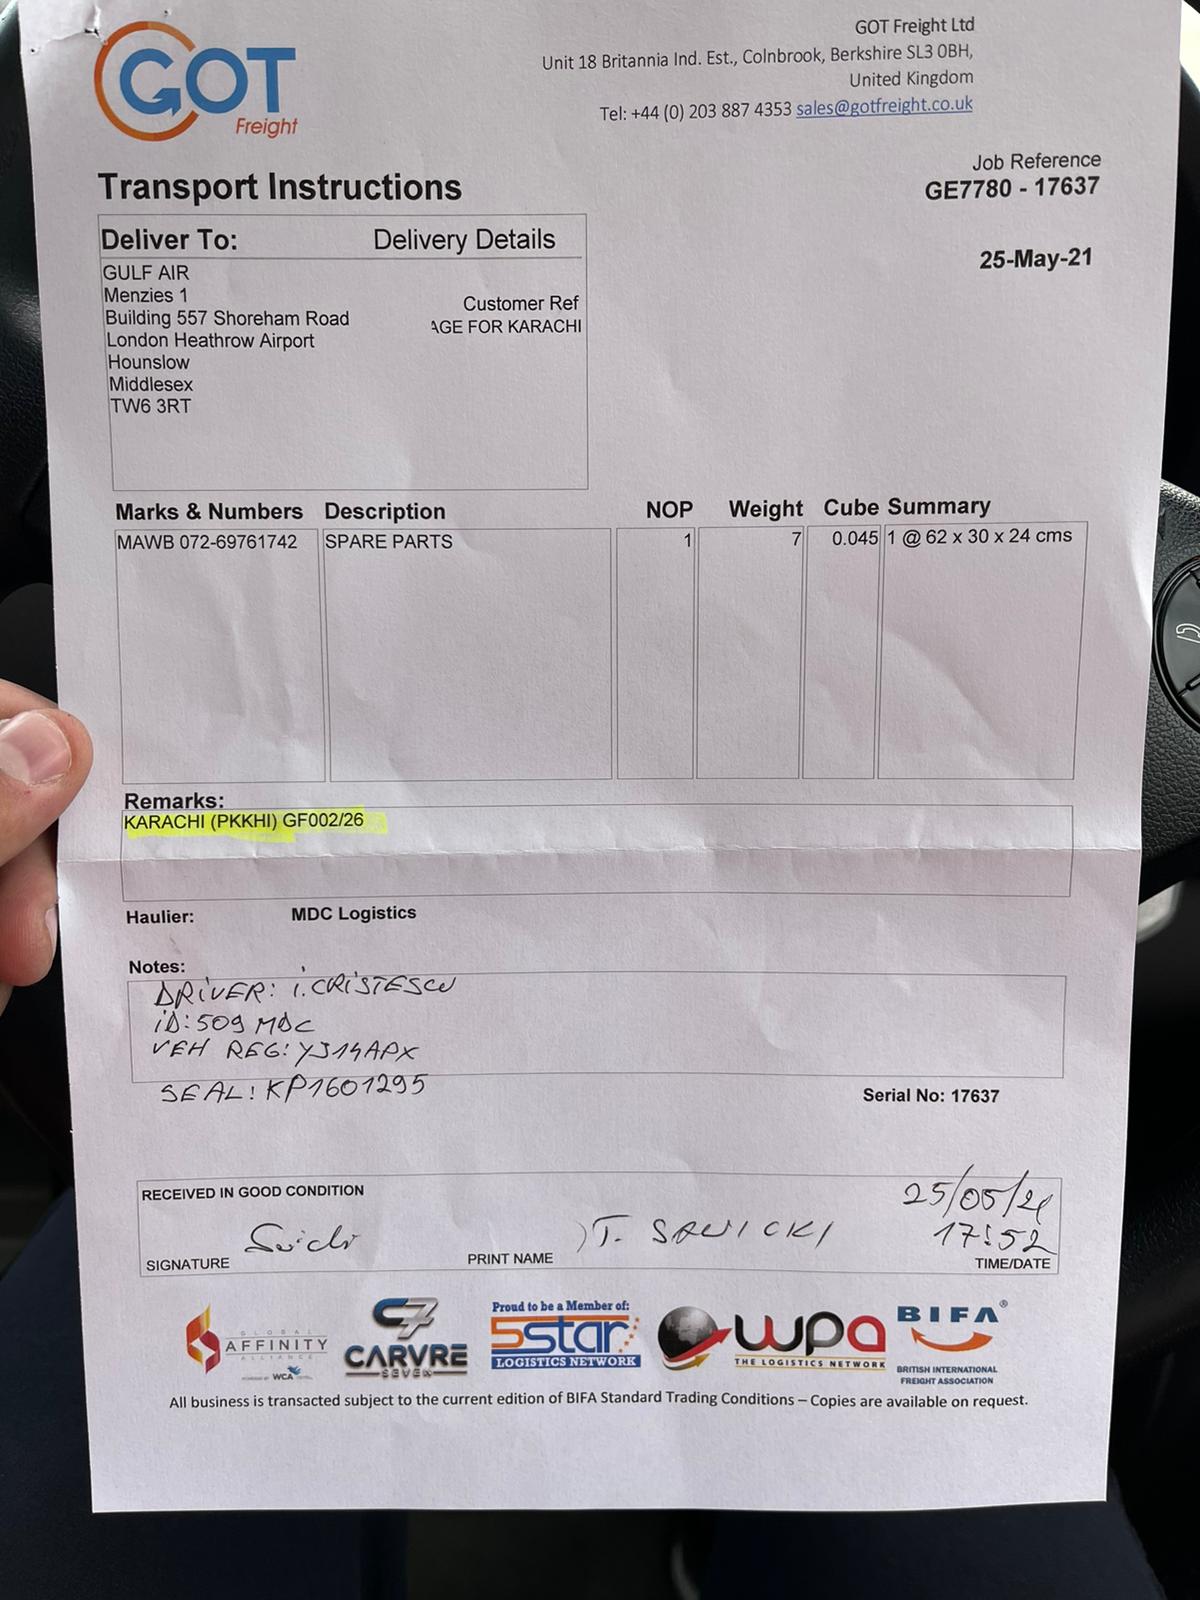 GOT
Freight
GOT Freight Ltd
Unit 18 Britannia Ind. Est., Colnbrook, Berkshire SL3 0BH,
United Kingdom
Tel: +44 (0) 203 887 4353 sales@gotfreight.co.uk
Transport Instructions
Job Reference
GE7780 - 17637
25-May-21
Deliver To: Delivery Details
GULF AIR
Menzies 1
Building 557 Shoreham Road
London Heathrow Airport
Hounslow
Middlesex
TW6 3RT
Customer Ref
AGE FOR KARACHI
Marks & Numbers Description NOP Weight Cube Summary
MAWB 072-69761742 SPARE PARTS 1 7 0.045 1 @ 62 x 30 x 24 cms
Remarks:
KARACHI (PKKHI) GF002/26
Haulier: MDC Logistics
Notes:
DRIVER: I.CRISTESCU
ID:509 MDC
VEH REG:YJ14APX
SEAL:KP1601295
Serial No: 17637
RECEIVED IN GOOD CONDITION
SIGNATURE
PRINT NAME T. SAWICKI
25/05/21
17:52
TIME/DATE
GLOBAL
AFFINITY
ALLIANCE
POWERED BY WCA
C7
CARVRE
SEVEN
Proud to be a Member of:
5star
LOGISTICS NETWORK
wpa
THE LOGISTICS NETWORK
BIFA®
BRITISH INTERNATIONAL
FREIGHT ASSOCIATION
All business is transacted subject to the current edition of BIFA Standard Trading Conditions – Copies are available on request.